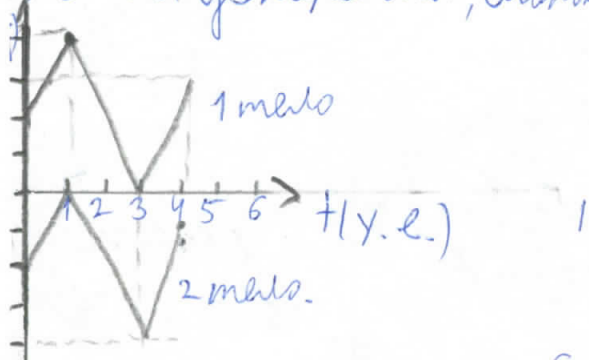 1 тело
1 2 3 4 5 6 t(у.е.)
2 тело.